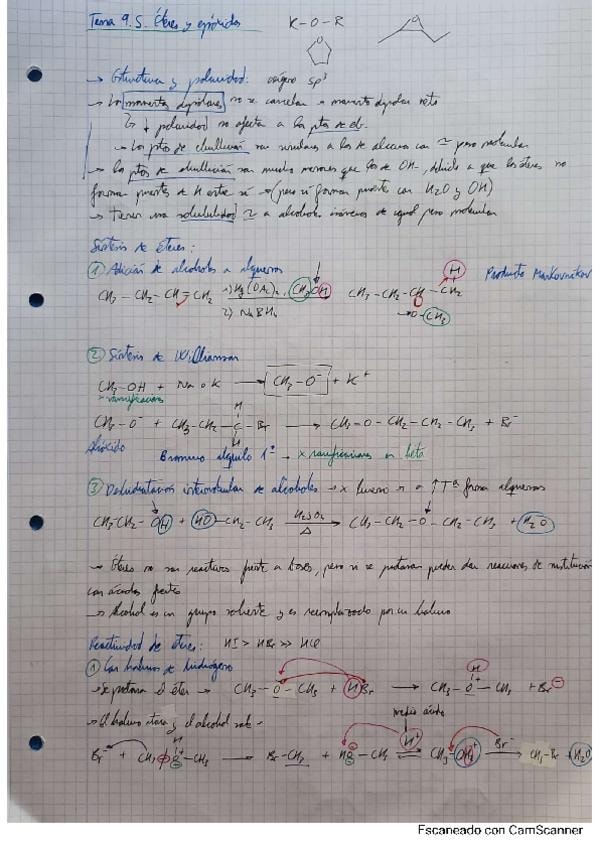 Tema 9.5. Éteres y epóxidos R-O-R O
O
→ Estructura y polaridad: oxígeno sp³
→ Los momentos dipolares no se cancelan → momento dipolar neto
↳ ↓ polaridad no afecta a los ptos de eb.
→ Los ptos de ebullición son similares a los de alcanos con ≃ peso molecular
→ Los ptos de ebullición son mucho menores que los de OH-, debido a que los éteres no
forman puentes de H entre sí → (pero sí forman puente con H₂O y OH)
→ Tienen una solubilidad ≃ a alcoholes isómeros de igual peso molecular
Síntesis de éteres:
① Adición de alcoholes a alquenos Producto Markovnikov
CH₃-CH₂-CH=CH₂ 1) Hg(OAc)₂, CH₃OH 2) NaBH₄ CH₃-CH₂-CH-CH₂ H
O-CH₃
② Síntesis de Williamson
CH₃-OH + Na o K → CH₃-O⁻ + K⁺
× ramificaciones
CH₃-O⁻ + CH₃-CH₂-C-Br → CH₃-O-CH₂-CH₂-CH₃ + Br⁻
H H
Alcóxido Bromuro alquilo 1º → × ramificaciones en beta
③ Deshidratación intermolecular de alcoholes → × bueno → a ↑Tª forma alquenos
CH₃-CH₂-OH + HO-CH₂-CH₃ H₂SO₄ Δ → CH₃-CH₂-O-CH₂-CH₃ + H₂O
→ Éteres no son reactivos frente a bases, pero si se protonan pueden dar reacciones de sustitución
con ácidos fuertes
→ Alcohol es un grupo saliente y es reemplazado por un haluro
Reactividad de éteres: HI > HBr >> HCl
① Con haluros de hidrógeno
→ Se protona el éter → CH₃-O-CH₃ + HBr → CH₃-O-CH₃ + Br⊖
H +
→ El haluro ataca y el alcohol sale → medio ácido
Br⁻ + CH₃-O-CH₃ → Br-CH₃ + HO-CH₃ H⁺ ⇌ CH₃-OH₂⁺ Br⁻ → CH₃-Br + H₂O
Escaneado con CamScanner